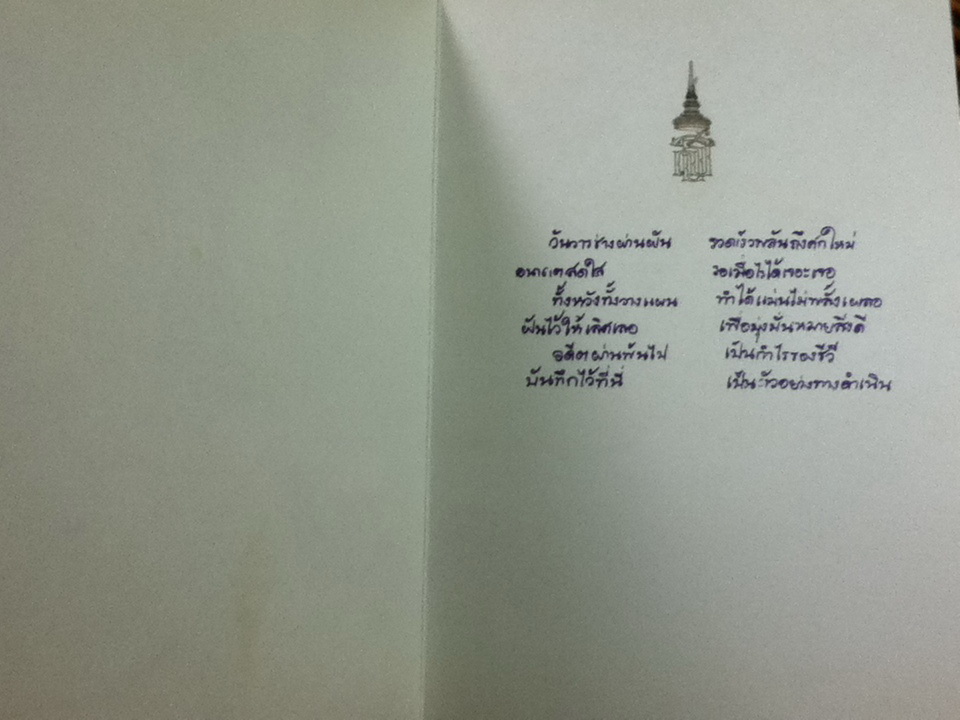 วันวารช่างผ่านผัน รวดเร็วพลันถึงศกใหม่
อนาคตสดใส รอเมื่อไรได้เจอะเจอ
ทั้งหวังทั้งวางแผน ทำได้แม่นไม่พลั้งเผลอ
ฝันไว้ให้เลิศเลอ เพื่อมุ่งมั่นหมายสิ่งดี
อดีตผ่านพ้นไป เป็นกำไรของชีวี
บันทึกไว้ที่นี่ เป็นตัวอย่างทางดำเนิน